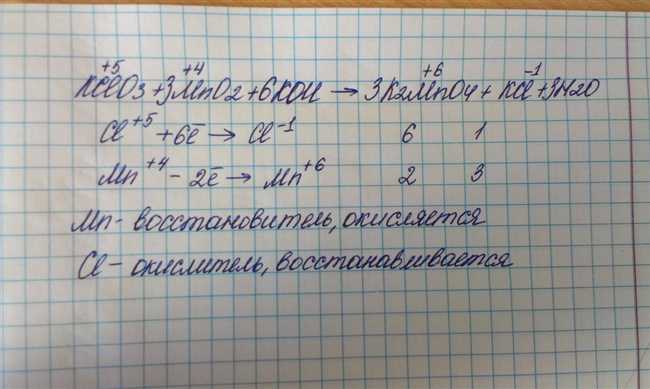 +5 +4 +6 -1
KClO3+3MnO2+6KOH → 3K2MnO4+KCl+3H2O
Cl+5 +6e̅ → Cl-1 6 1
Mn+4 - 2e̅ → Mn+6 2 3
Mn - восстановитель, окисляется
Cl - окислитель, восстанавливается